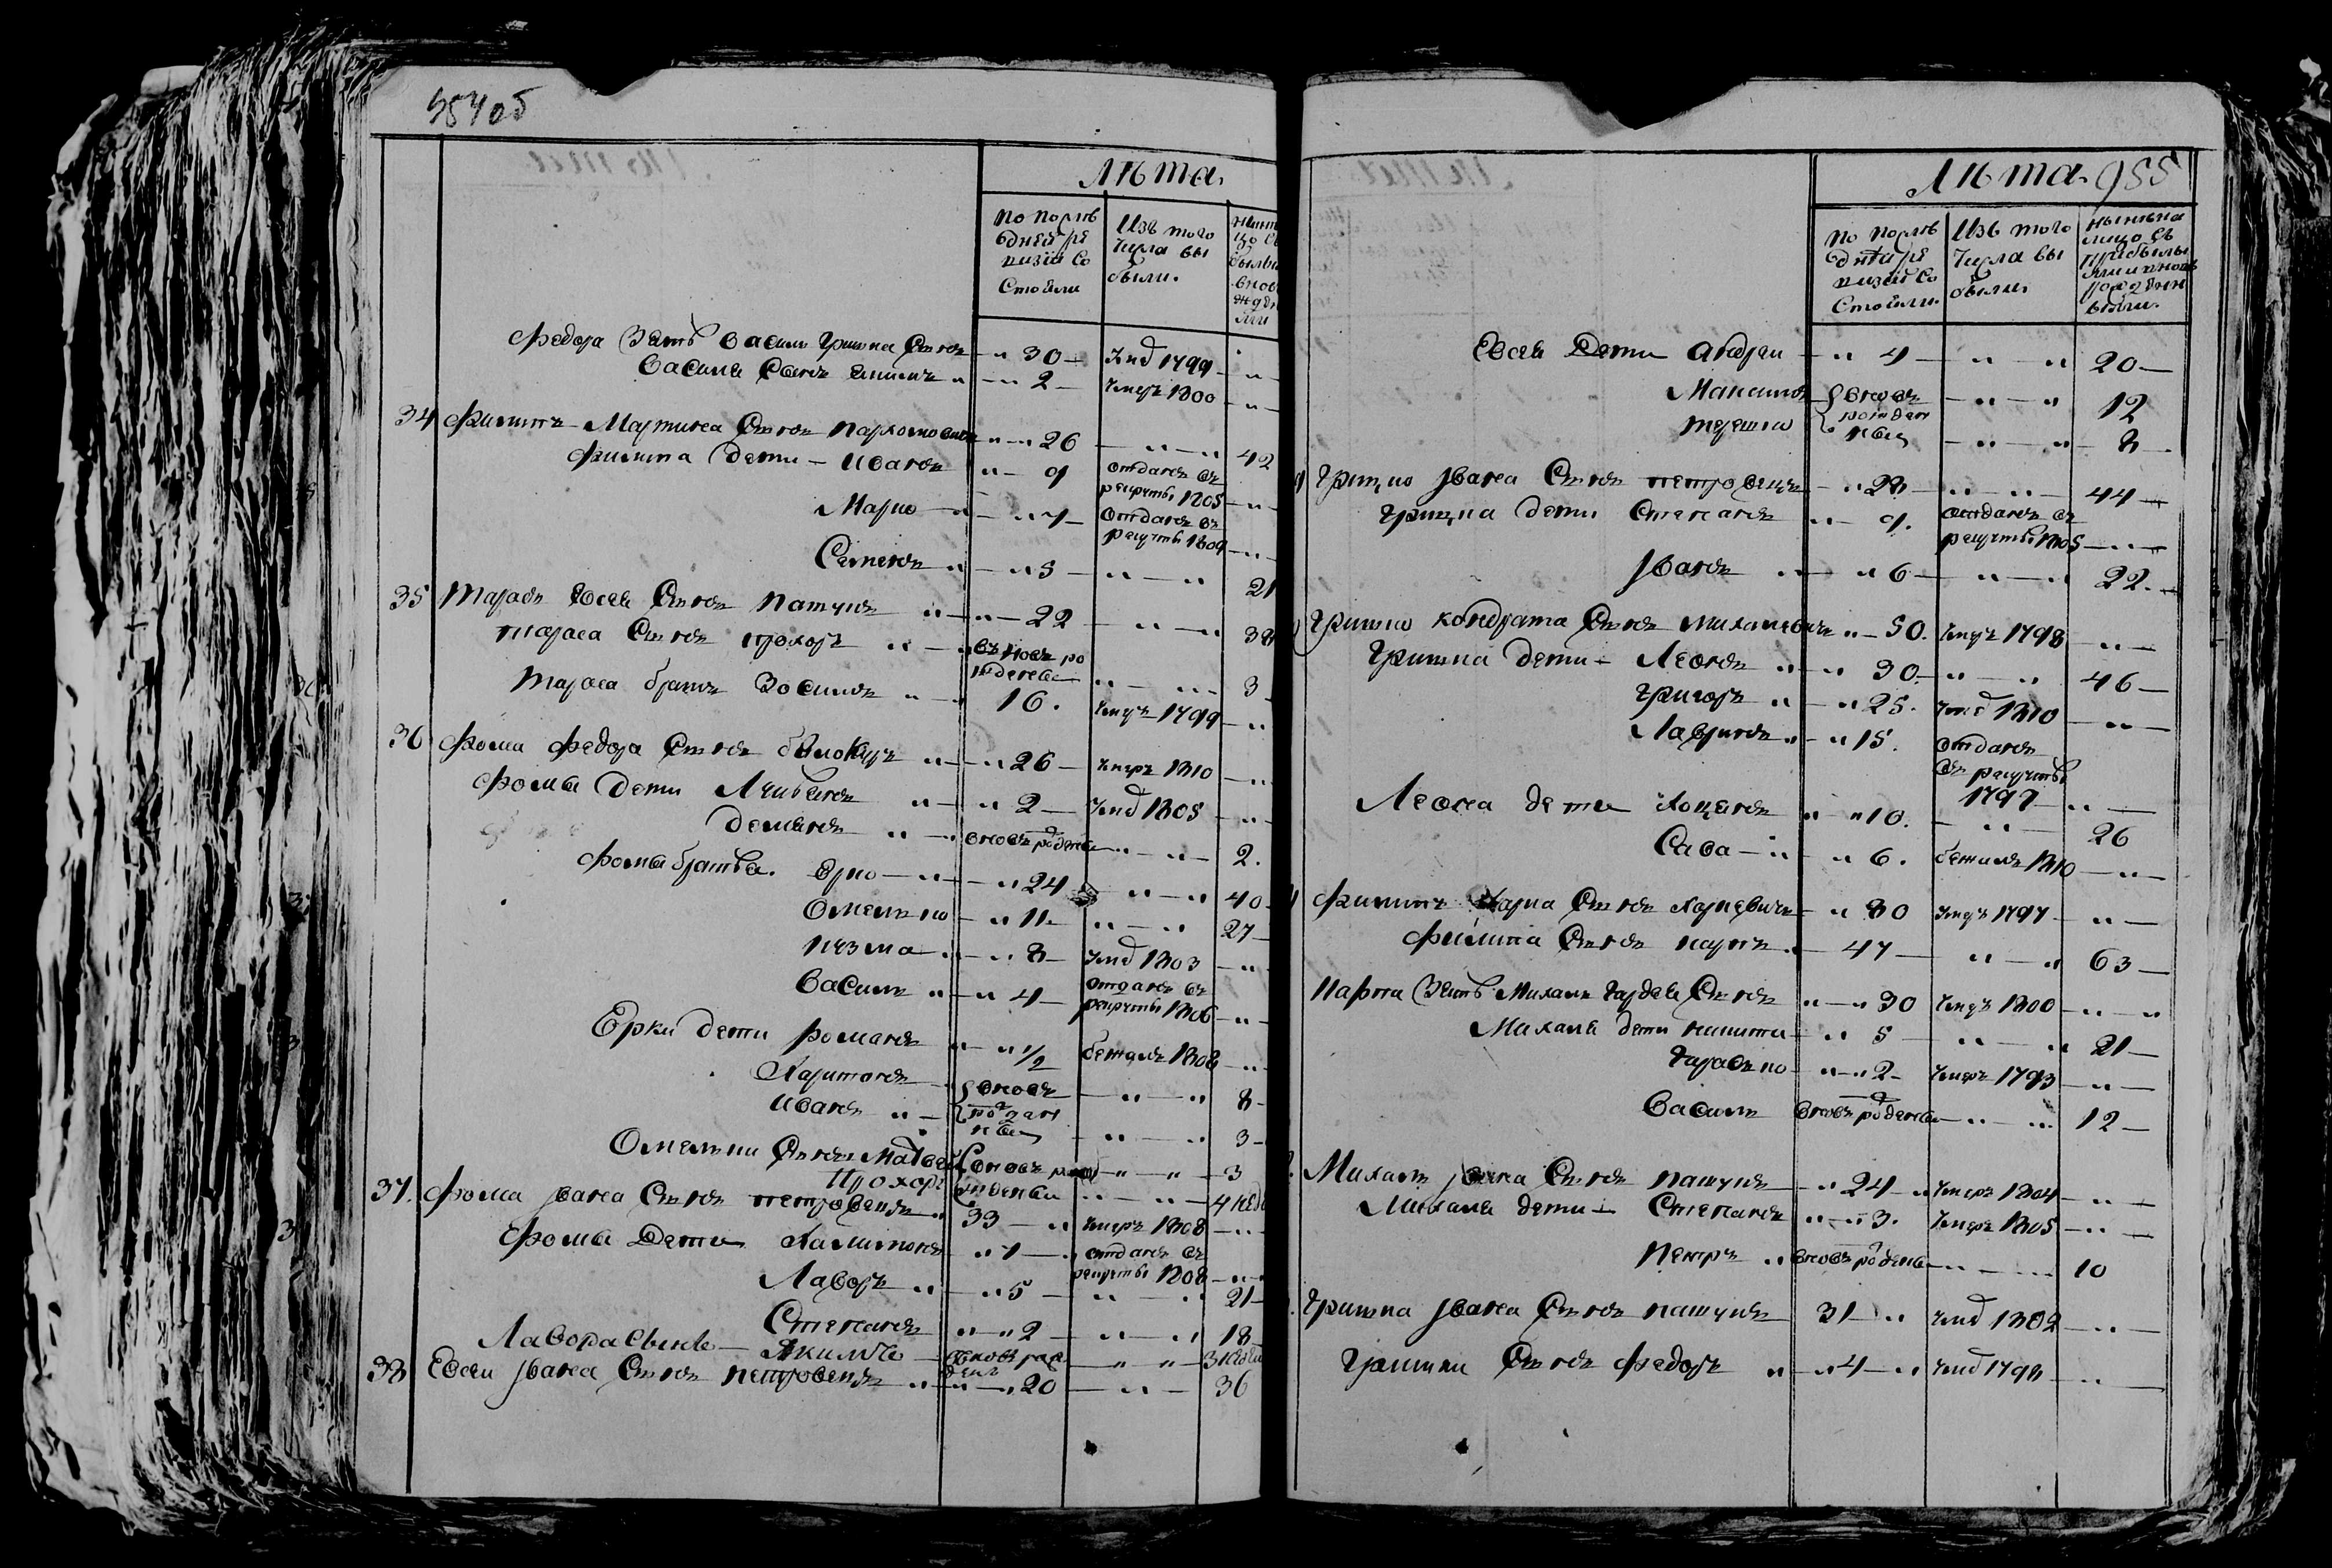 954 об
Лѣта.
По послѣ дней ре визіи со стояли
Изъ того числа вы были.
Федора Зять Василь Гришка Сынъ 30 Умд 1799
Василя Сынъ 2 Умеръ 1800
34 Филипъ Мартина Сынъ Пархомовичъ 26 42
Филипа дети Иванъ 9 отданъ въ рекруты 1805
Марко 7 отданъ въ рекруты 1809
Семенъ 5 21
35 Тарасъ Евсея Сынъ Пашукъ 22 38
Тараса Сынъ Прохоръ вновь рожденъ 3
Тараса братъ Зосимъ 16. Умеръ 1799
36 Фома Федора Сынъ Белокуръ 26 Умеръ 1810
Фомы дети 2 Умд 1805
Демянъ вновь рожденъ 2.
Фомы братья. Ерко 24 40
Омелько 11 27
Кузма 8 Умд 1803
Василь 4 отданъ въ рекруты 1806
Ерки дети Романъ 1/2 бежалъ 1808
Харитонъ вновь 8
Иванъ рожденные 3
Омельки Сынъ Матвей вновь 3
Прохоръ рожденные 4 неде
37. Фома Ивана Сынъ Петровецъ 33 Умеръ 1808
Фомы Дети Халимонъ 7 отданъ въ рекруты 1808
Лавръ 5 21
Степанъ 2 18
Лавора Сынъ Якимъ вновь рожденъ
38 Евсей Ивана Сынъ Петровецъ 20 36
Лѣта. 955
По послѣ дней ре визіи со стояли
Изъ того числа вы были.
нынѣ на лицо съ прибылы ми и вновь рожденн ыми.
Евсея Дети Андрей 4 20
Максимъ вновь 12
Терешко рожденные 8
Грицко Ивана Сынъ Петровецъ 28 44
Грицка дети Степанъ 9. отданъ въ рекруты 1805
Иванъ 6 22.
Гришко Кондрата Сынъ Михалевичъ 50. Умеръ 1798
Гришка дети Леонъ 30. 46
Григоръ 25. Умд 1810
Лавринъ 15. отданъ въ рекруты 1797
Леона дети 10. 26
Сава 6. бежалъ 1810
Филипъ Карпа Сынъ Карпевичъ 80 Умеръ 1797
Филипа Сынъ Карпъ 47 63
Карпа Зять Михаль Гордея Сынъ 30 Умеръ 1800
Михаля дети Никита 5 21
Тарасько 2 Умеръ 1793
Василь вновь рожденъ 12
Михаль Ивана Сынъ Пашукъ 24 Умеръ 1804
Михаля дети Степанъ 3. Умеръ 1805
Петръ вновь рожденъ 10
Гришка Ивана Сынъ Пашукъ 31 Умд 1802
Гришки Сынъ Федоръ 4 Умд 1798